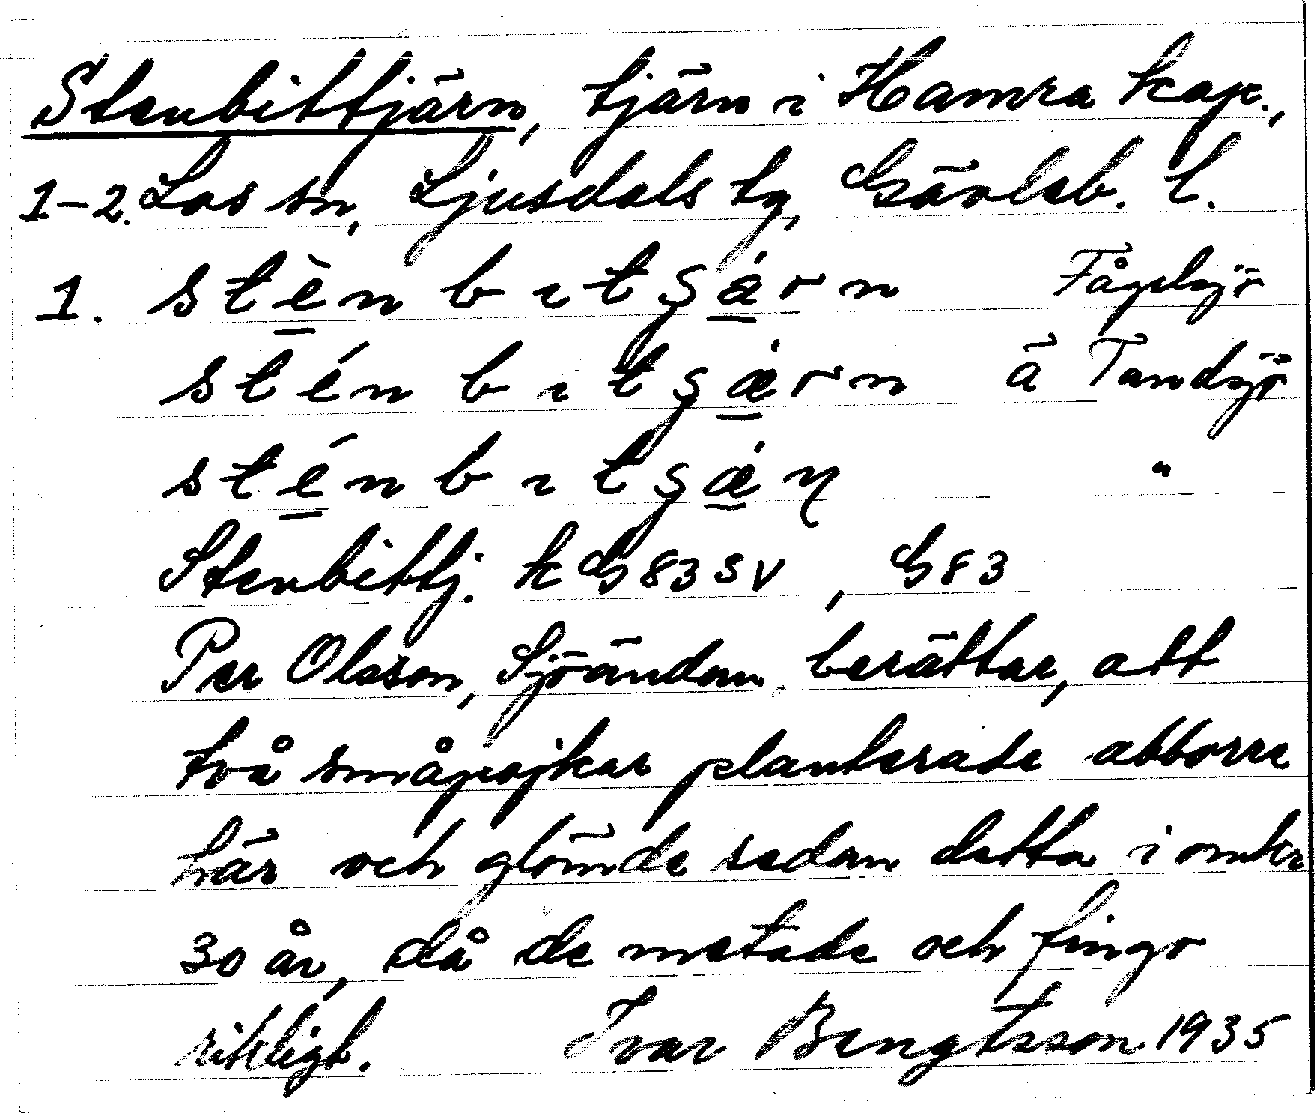 Stenbittjärn, tjärn i Hamra kap.,
1-2. Los sn, Ljusdals tg, Gävleb. l.
1. stèn bıtşärn Fågelsjö
stén bıtşæ̀rn å Tandsjö
stén bıtşæ̀ɳ "
Stenbittj. k G83 SV, G83
Per Olsson, Sjöändan berättar, att
två småpojkar planterade abborre
här och glömde sedan detta i omkr
30 år, då de metade och fingo
rikligt. Ivar Bengtsson 1935